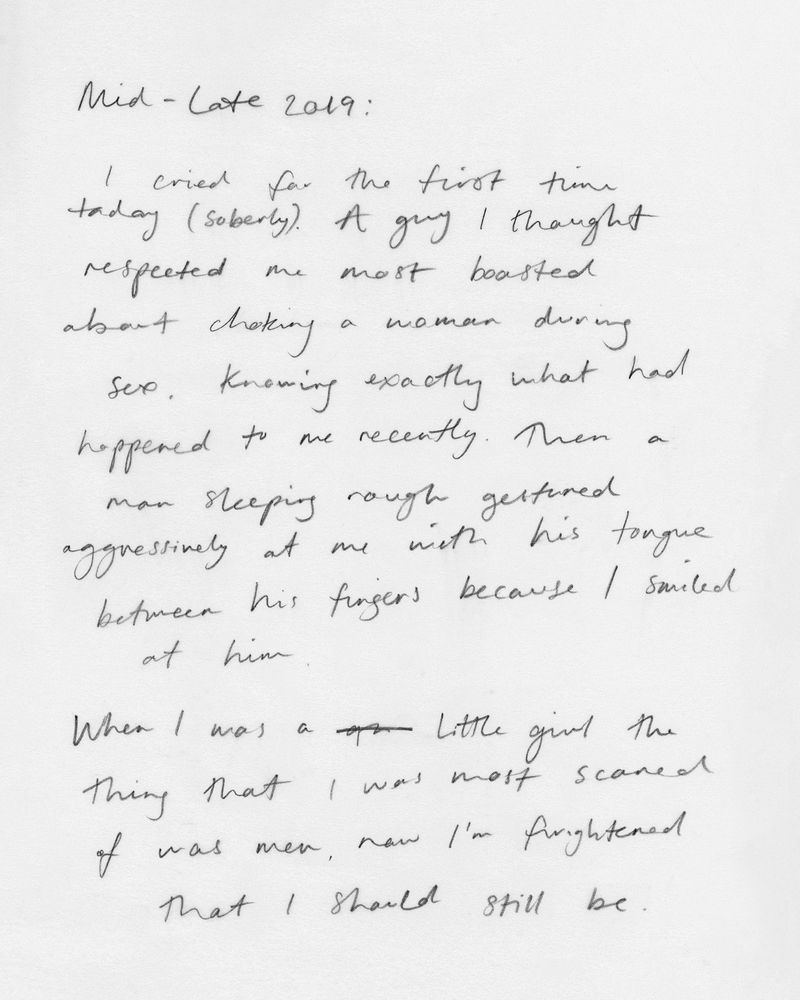 Mid-Late 2019:
I cried for the first time
today (soberly). A guy I thought
respected me most boasted
about choking a woman during
sex. Knowing exactly what had
happened to me recently. Then a
man sleeping rough gestured
aggressively at me with his tongue
between his fingers because I smiled
at him.
When I was a little girl the
thing that I was most scared
of was men, now I'm frightened
that I should still be.